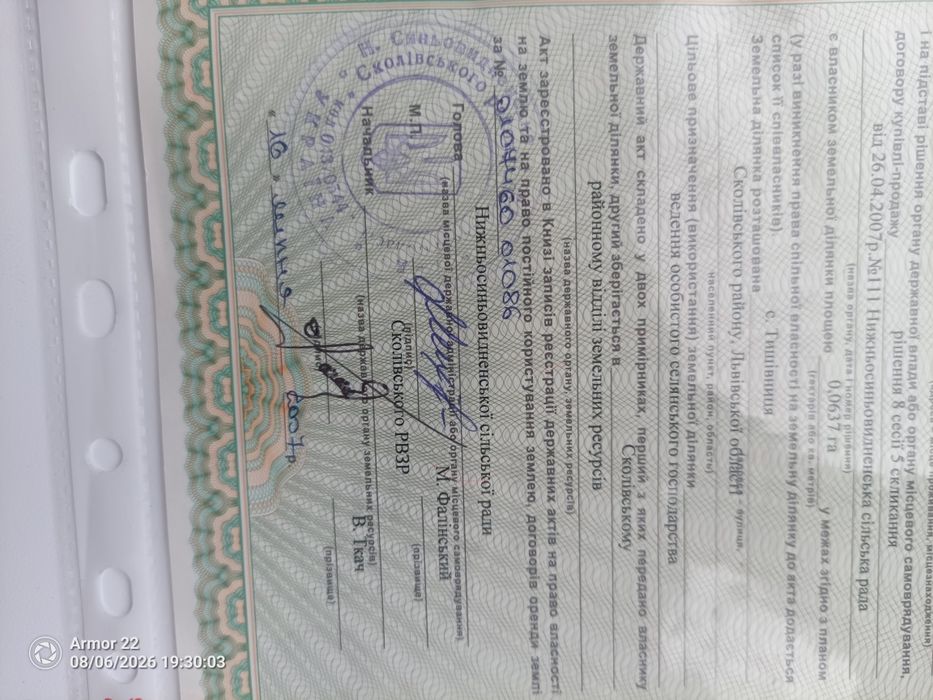 і на підставі рішення органу державної влади або органу місцевого самоврядування,
договору купівлі-продажу рішення 8 сесії 5 скликання
від 26.04.2007р.№111 Нижньосиньовидненська сільська рада
(назва органу, дата і номер рішення)
є власником земельної ділянки площею 0,0637 га у межах згідно з планом
(гектарів або кв. метрів)
(у разі виникнення права спільної власності на земельну ділянку до акта додається
список її співвласників).
Земельна ділянка розташована с. Тишівниця
Сколівського району, Львівської області
населений пункт, район, область) вулиця,
Цільове призначення (використання) земельної ділянки
ведення особистого селянського господарства
Державний акт складено у двох примірниках, перший з яких передано власнику
земельної ділянки, другий зберігається в Сколівському
районному відділі земельних ресурсів
(назва державного органу, земельних ресурсів)
Акт зареєстровано в Книзі записів реєстрації державних актів на право власності
на землю та на право постійного користування землею, договорів оренди землі
за №
Нижньосиньовидненської сільської ради
Голова (назва місцевої державної адміністрації або органу місцевого самоврядування)
М. Фалінський
М.П. (підпис) (прізвище)
Сколівського РВЗР
Начальник (назва державного органу земельних ресурсів)
В. Ткач
(прізвище)
" 16 " липня 2007р
Сколівського
Armor 22
08/06/2026 19:30:03